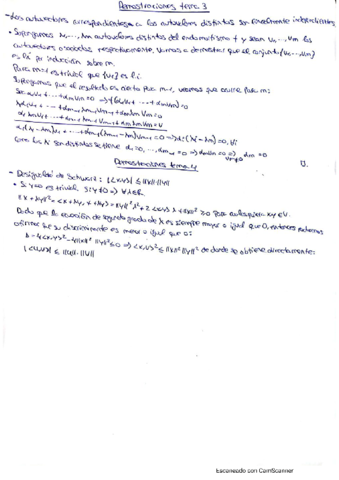 Demostraciones tema 3
-Los autovectores correspondientes a los autovalores distintos son linealmente independientes
• Supongamos λ₁,..., λm autovalores distintos del endomorfismo f y sean v₁,...,vm los
autovectores asociados respectivamente, vamos a demostrar que el conjunto {v₁...vm}
es l.i por inducción sobre m.
Para m=1 es trivial que {v₁} es l.i.
Supongamos que el resultado es cierto para m-1, veamos que ocurre para m:
Sea α₁v₁ + ... + αmvm = 0 => f(α₁v₁ + ... + αmvm) = 0
como los λ son distintos se tiene α₁ = 0, ..., αm-1 = 0 => αmvm = 0 => αm = 0
Demostraciones tema 4
- Desigualdad de Schwarz: |<x,y>| ≤ ||x||·||y||
• Si y=0 es trivial. Si y≠0 => ∀λ∈ℝ
||x + λy||² = <x + λy, x + λy> = ||y||²λ² + 2<x,y>λ + ||x||² ≥ 0 para cualquier x,y ∈ V.
Dado que la ecuación de segundo grado de λ es siempre mayor o igual que 0, entonces podemos
afirmar que su discriminante es menor o igual que 0:
Δ = 4<x,y>² - 4||x||² ||y||² ≤ 0 => <x,y>² ≤ ||x||² ||y||² de donde se obtiene directamente:
Escaneado con CamScanner